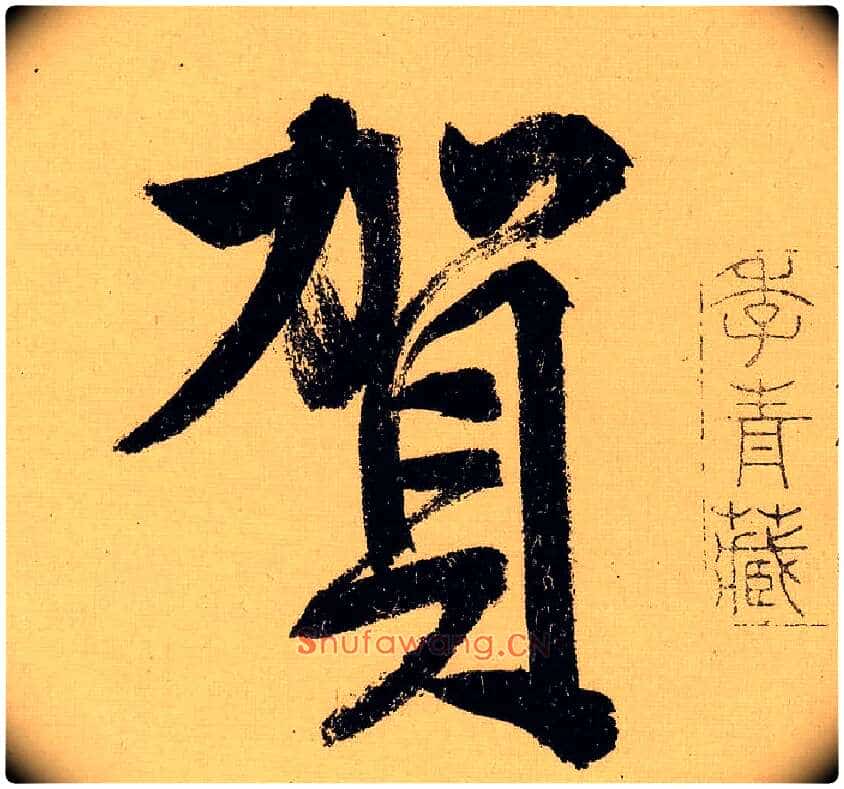 賀
季青藏
Shufawang.CN